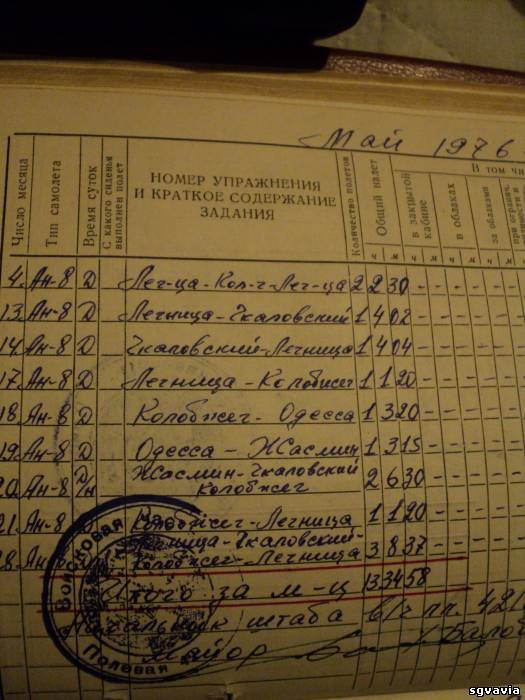 Май 1976
Число месяца
Тип самолета
Время суток
С какого сиденья выполнен полет
НОМЕР УПРАЖНЕНИЯ
И КРАТКОЕ СОДЕРЖАНИЕ
ЗАДАНИЯ
Количество полетов
Общий налет
В том чи
в закрытой кабине
в облаках
за облаками
при огранич.
ч м ч м ч м ч м
4. Ан-8 Д Лег-ца-Кол-г-Лег-ца 2 2 30
13. Ан-8 Д Легница-Чкаловский 1 4 02
14. Ан-8 Д Чкаловский-Легница 1 4 04
17. Ан-8 Д Легница-Колобжег 1 1 20
18. Ан-8 Д Колобжег-Одесса 1 3 20
19. Ан-8 Д Одесса-Жасмин 1 3 15
20. Ан-8 Д/Н Жасмин-Чкаловский
Колобжег 2 6 30
21. Ан-8 Колобжег-Легница 1 1 20
28. Ан-8 Легница-Чкаловский-
Колобжег-Легница 3 8 37
Итого за м-ц 13 34 58
Начальник штаба в/ч пп 421
Майор
Войсковая
Полевая
sgvavia